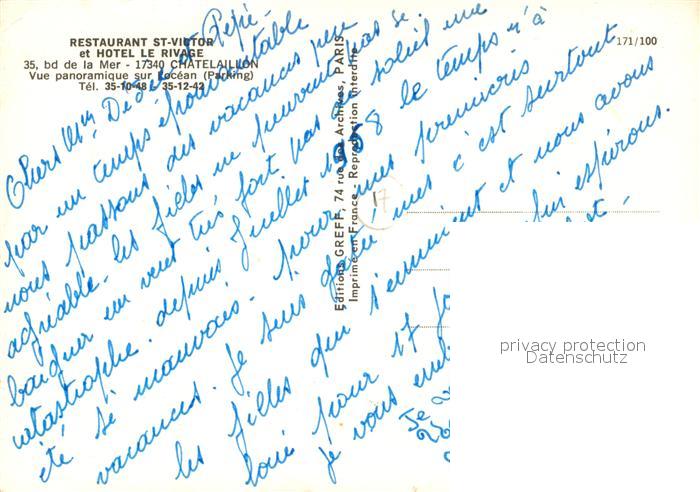 RESTAURANT ST-VICTOR
et HOTEL LE RIVAGE
35, bd de la Mer - 17340 CHATELAILLON
Vue panoramique sur l'océan (Parking)
Tél. 35-10-48 - 35-12-42
171/100
Editions GREFF, 74 rue des Archives, PARIS
Imprimé en France - Reproduction Interdite
17
Chers
par un temps épouvantable
nous passons des vacances peu
agréable. les filles ne peuvent pas se
baigner un vent très fort pas de soleil une
catastrophe. depuis Juillet le temps n'à
été si mauvais. pour mes premières
vacances. Je suis mes c'est surtout
les filles qui s'ennuient et nous avons
loué pour 17 espérons.
je vous
privacy protection
Datenschutz